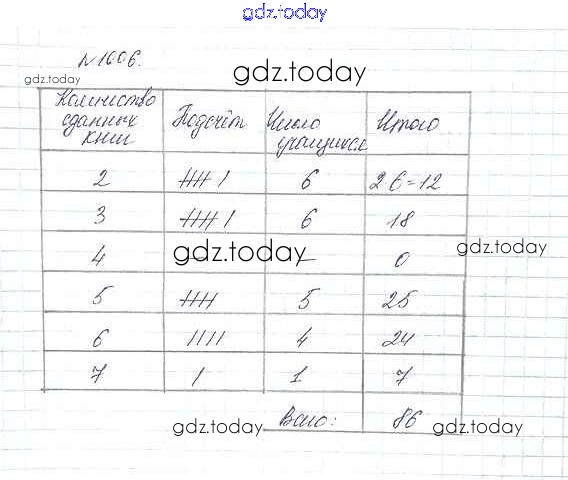 gdz.today
№1606.
gdz.today
gdz.today
Количество сданных книг Подсчёт Число учащихся Итого
2 𝍸 | 6 2·6=12
3 𝍸 | 6 18
4 — — 0
gdz.today
gdz.today
5 𝍸 5 25
6 |||| 4 24
7 | 1 7
Всего: 86
gdz.today
gdz.today